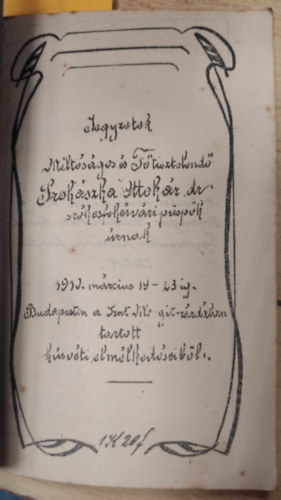 Jegyzetek
Méltóságos és Főtisztelendő
Prohászka Ottokár dr
székesfehérvári püspök
úrnak
1910. március 19 - 23 ig.
Budapesten a Szent
tartott
húsvéti elmélkedéseiből.
1K20f